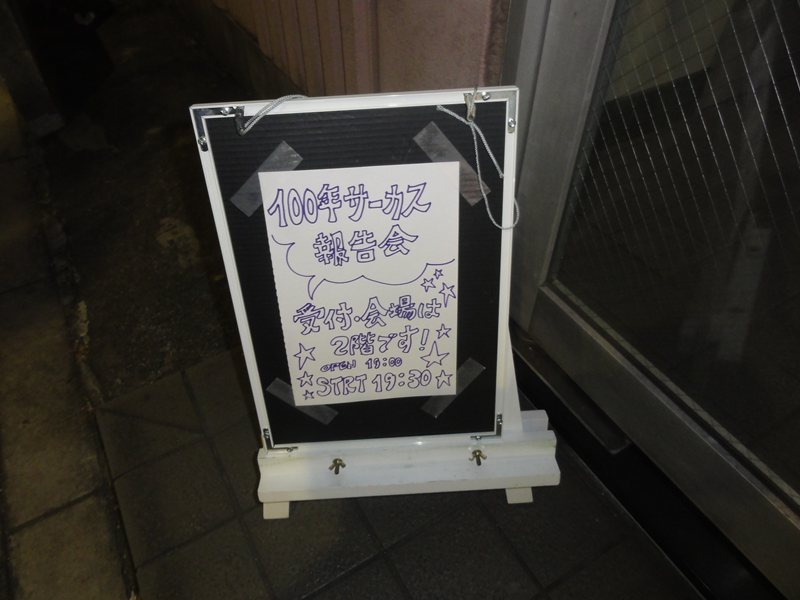 100年サーカス
報告会
受付・会場は
2階です!
OPEN 19:00
STRT 19:30